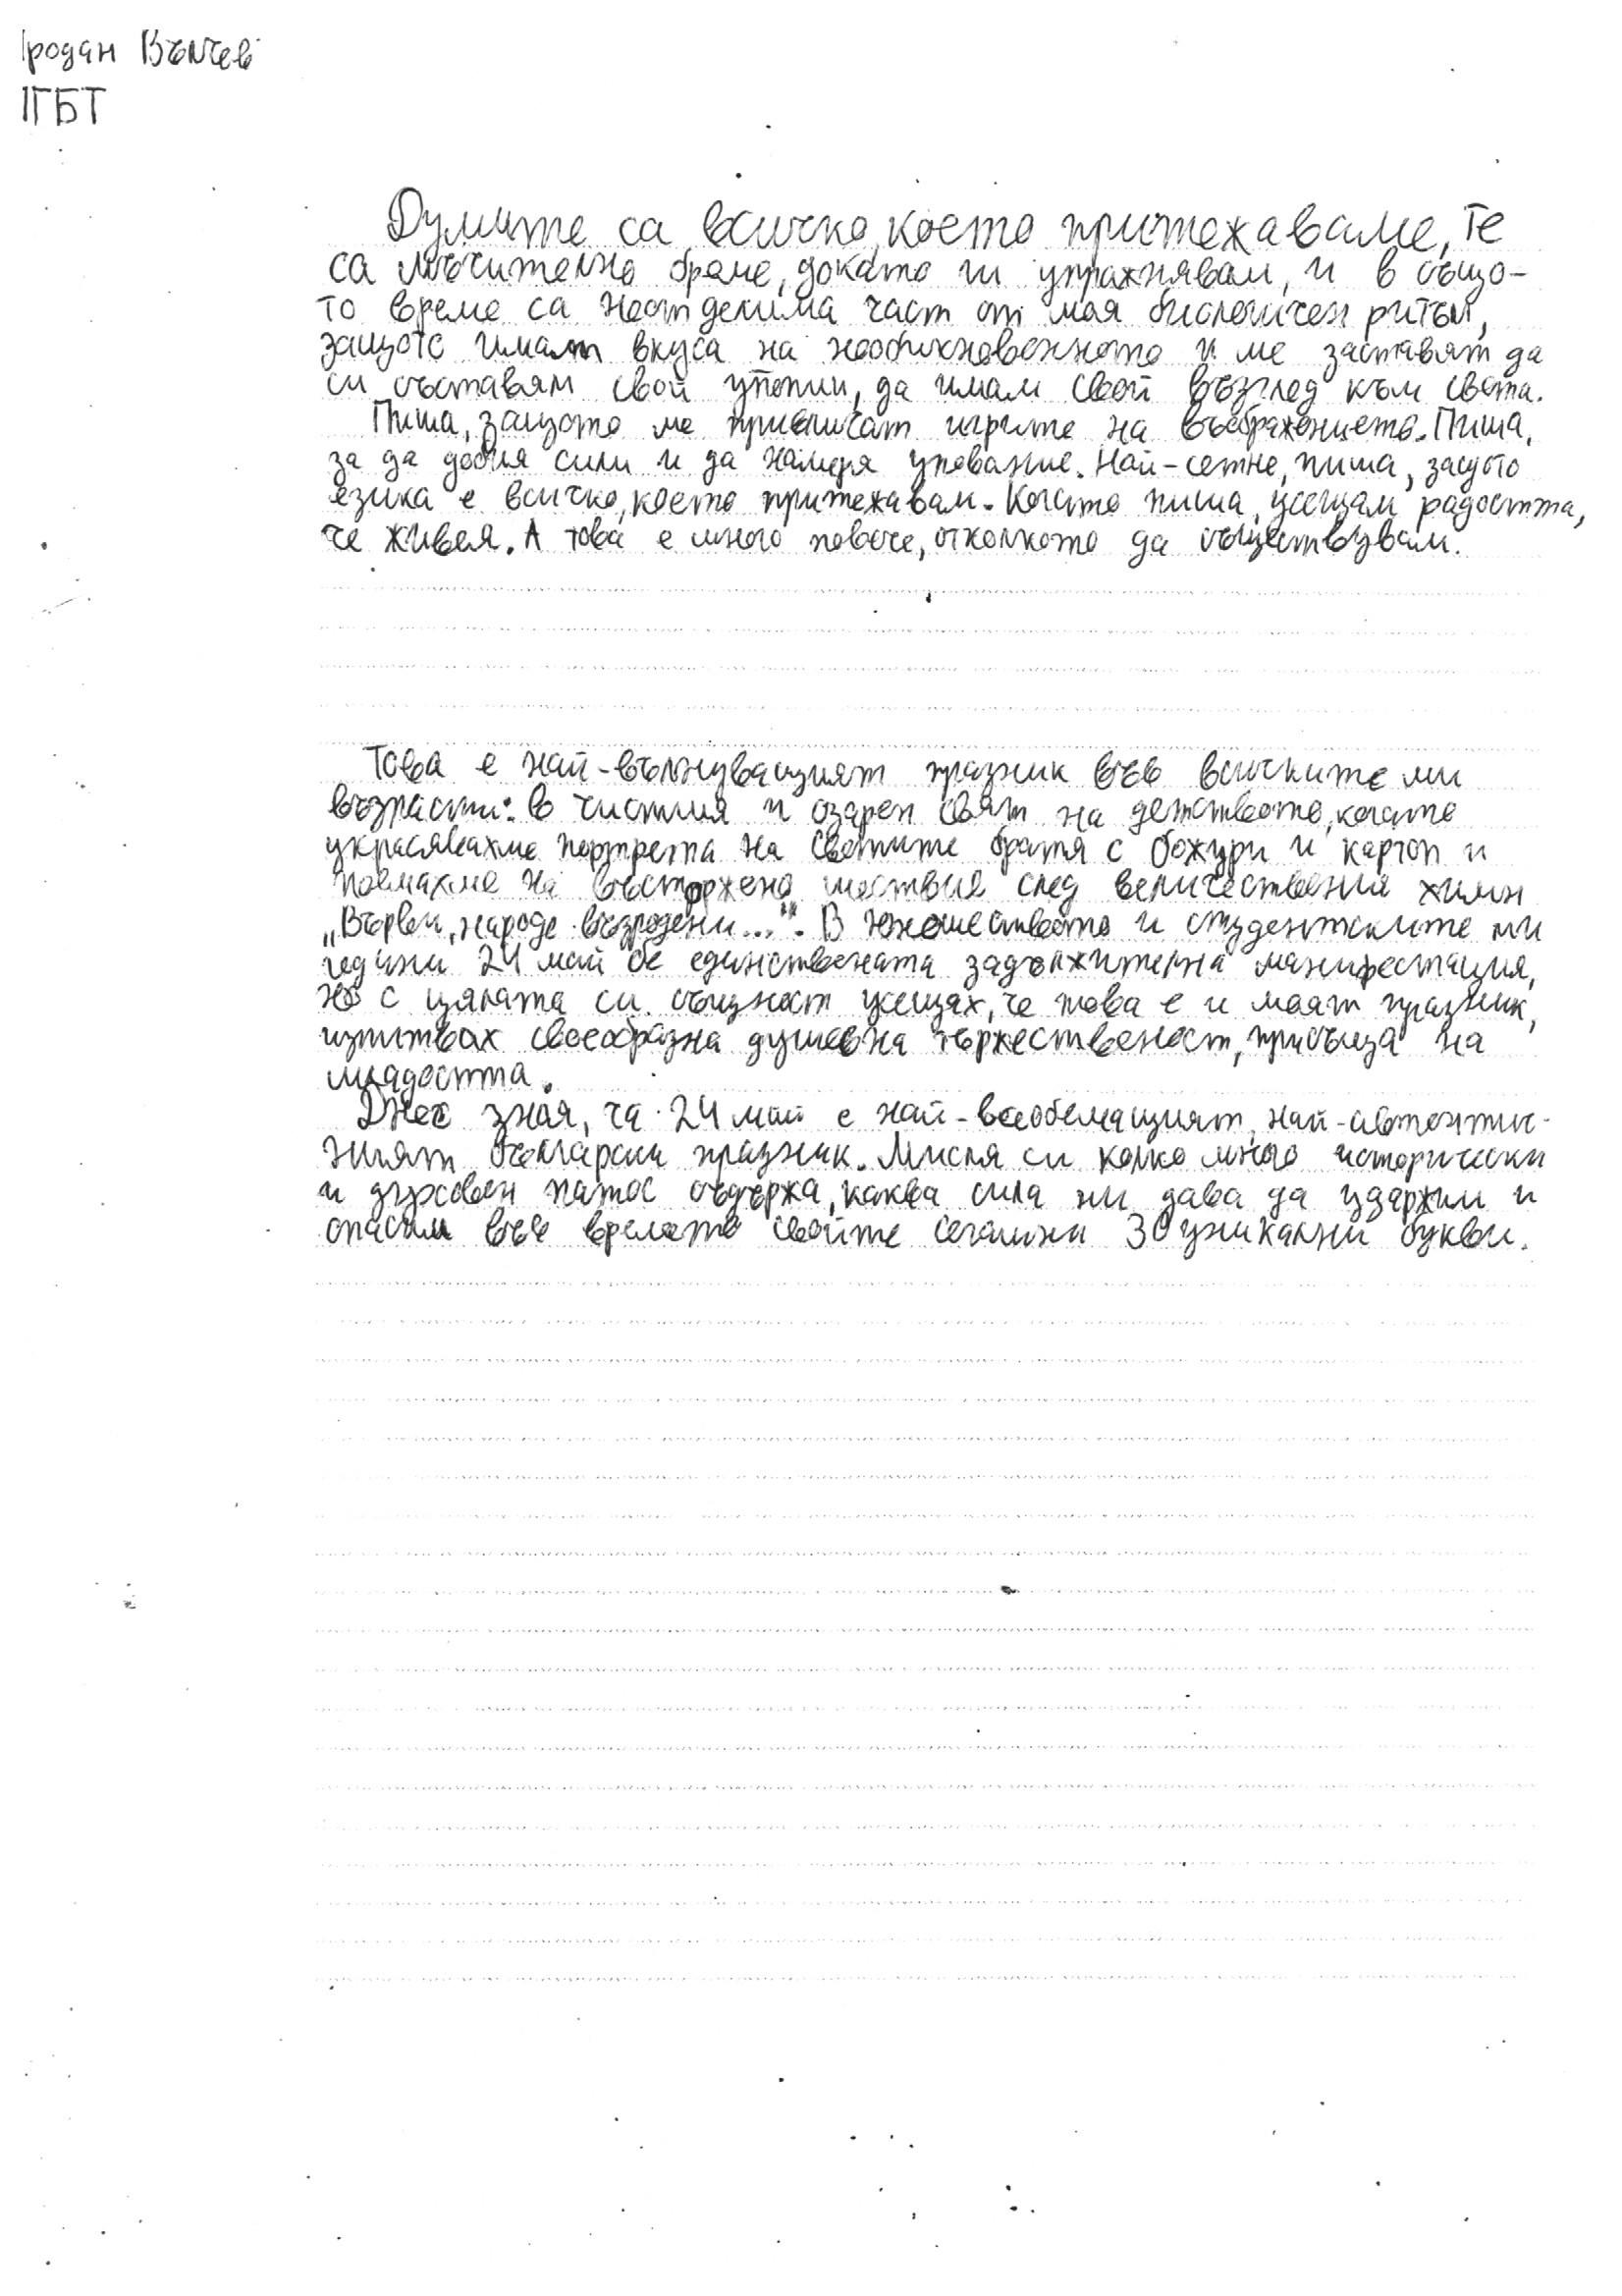 родан Вълчев
ПГБТ
Думите са всичко, което притежаваме, те
са мъчително бреме, докато ги упражнявам, и в също-
то време са неотделима част от моя биологичен ритъм,
защото имат вкуса на необикновеното и ме заставят да
си съставям свои утопии, да имам свой възглед към света.
Пиша, защото ме привличат игрите на въображението. Пиша,
за да добия сили и да намеря упование. Най-сетне, пиша, защото
езика е всичко, което притежавам. Когато пиша, усещам радостта,
че живея. А това е много повече, отколкото да съществувам.
Това е най-вълнуващият празник във всичките ми
възрасти: в чистия и озарен свят на детството, когато
украсявахме портрета на Светите братя с божури и картон и
поемахме на възторжено шествие след величествения химн
„Върви, народе възродени...". В юношеството и студентските ми
години 24 май бе единствената задължителна манифестация,
но с цялата си същност усещах, че това е и моят празник,
изпитвах своеобразна душевна тържественост, присъща на
младостта.
Днес зная, че 24 май е най-всеобемащият, най-автентич-
ният български празник. Мисля си колко много исторически
и духовен патос съдържа, каква сила ни дава да удържим и
опасим във времето своите сегашни 30 уникални букви.